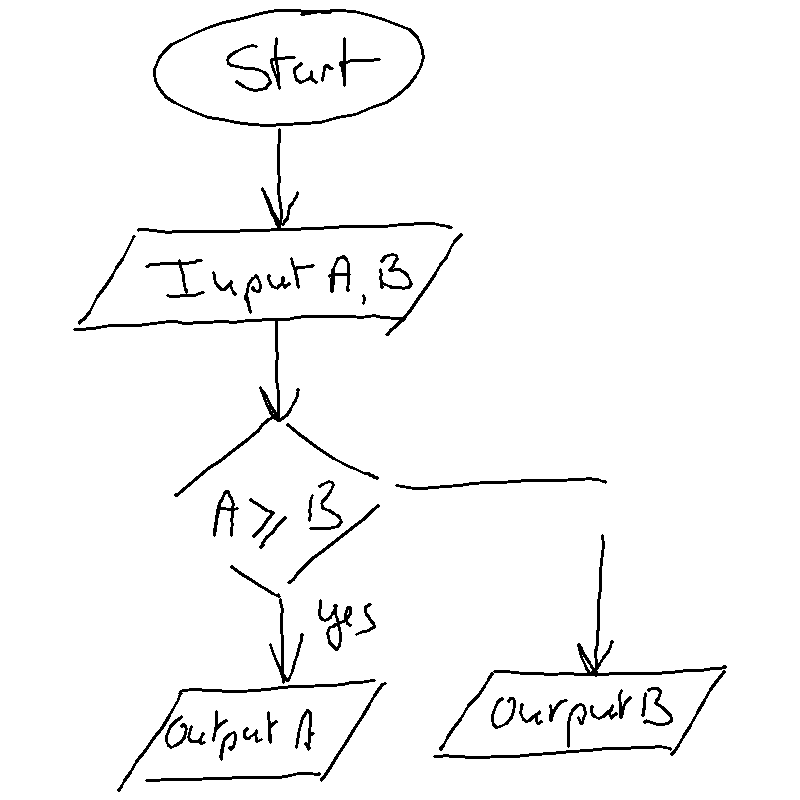 Start
Input A, B
A ⩾ B
yes
Output A
Output B